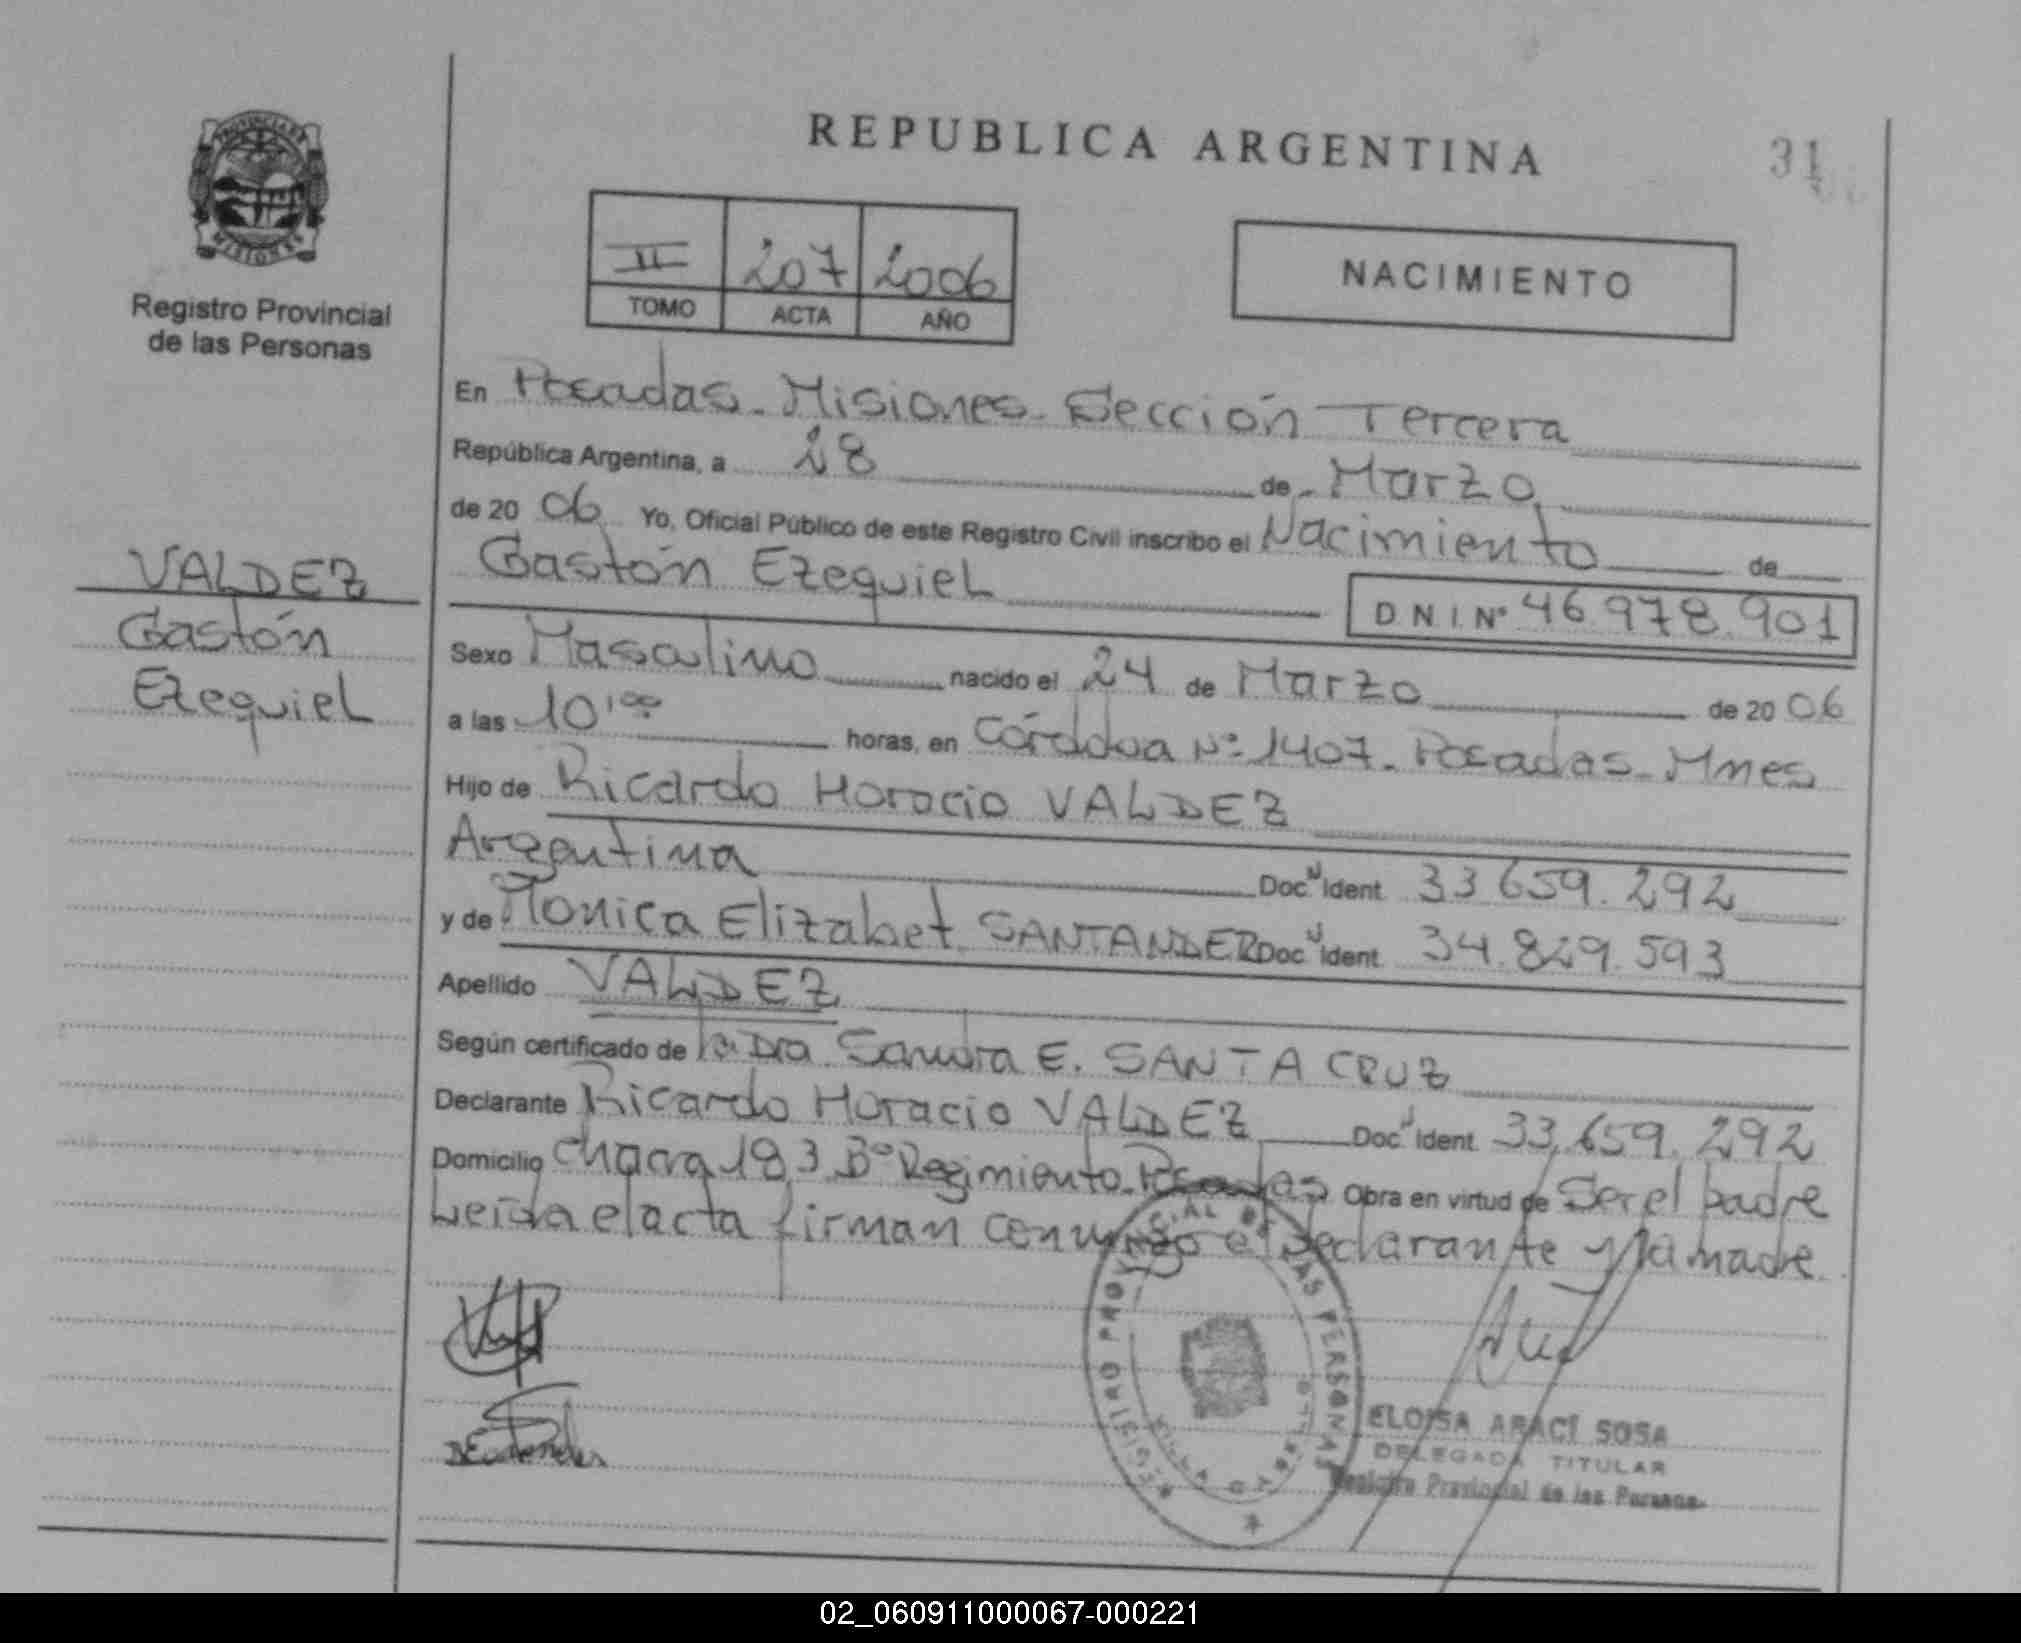 REPUBLICA ARGENTINA
31
PROVINCIA DE
MISIONES
Registro Provincial
de las Personas
II 207 2006
TOMO ACTA AÑO
NACIMIENTO
En Posadas - Misiones - Sección Tercera
República Argentina, a 28 de Marzo
de 20 06 Yo, Oficial Público de este Registro Civil inscribo el Nacimiento de
Gastón Ezequiel D.N.I. Nº 46.978.901
VALDEZ
Gastón
Ezequiel
Sexo Masculino nacido el 24 de Marzo de 20 06
a las 10,00 horas, en Córdoba Nº 1407 - Posadas - Mnes
Hijo de Ricardo Horacio VALDEZ
Argentina Doc. Ident. 33.659.292
y de Monica Elizabet SANTANDER Doc. Ident. 34.829.593
Apellido VALDEZ
Según certificado de la Dra Sandra E. SANTA CRUZ
Declarante Ricardo Horacio VALDEZ Doc. Ident. 33.659.292
Domicilio Chacra 183 Bº Regimiento - Posadas Obra en virtud de Ser el padre
Leída el acta firman conmigo el Declarante y la madre
REGISTRO PROVINCIAL DE LAS PERSONAS
ELOISA ARACÍ SOSA
DELEGADA TITULAR
Registro Provincial de las Personas
02_060911000067-000221